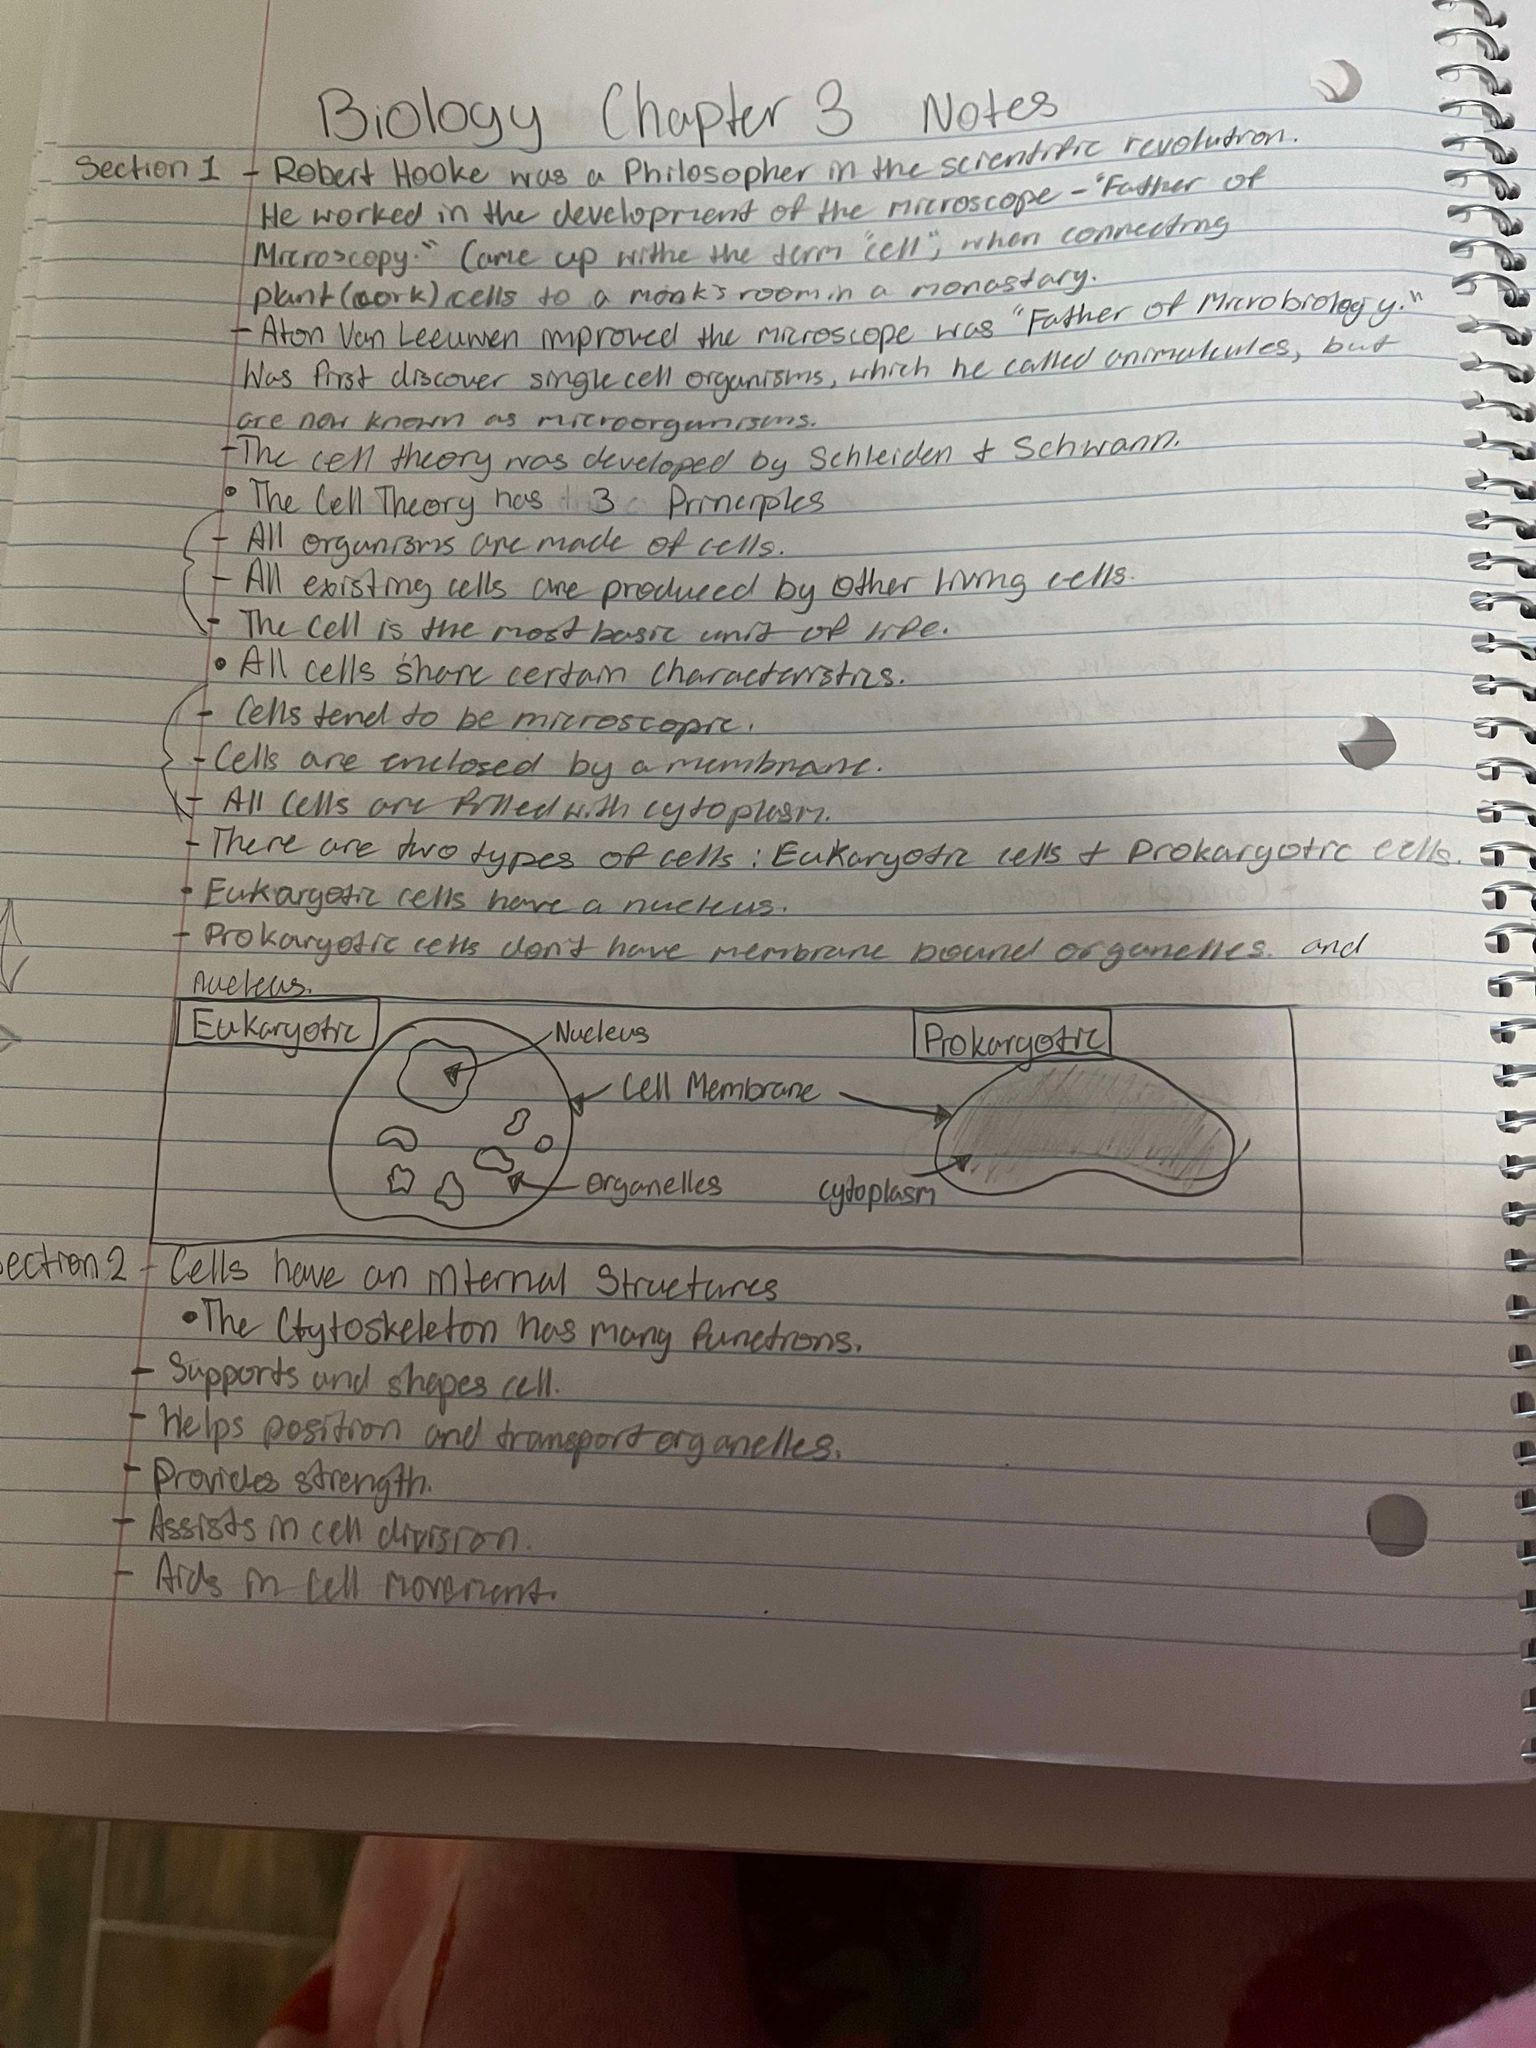 Biology Chapter 3 Notes
Section 1 - Robert Hooke was a Philosopher in the scientific revolution.
He worked in the development of the microscope - "Father of
Microscopy." Came up withe the term "cell", when connecting
plant (cork) cells to a monk's room in a monastary.
- Aton Van Leeuwen improved the microscope was "Father of Microbiology."
Was first discover single cell organisms, which he called animalcules, but
are now known as microorganisms.
- The cell theory was developed by Schleiden + Schwann.
• The Cell Theory has 3 Principles
- All organisms are made of cells.
- All existing cells are produced by other living cells.
- The cell is the most basic unit of life.
• All cells share certain characteristics.
- Cells tend to be microscopic.
- Cells are enclosed by a membrane.
- All cells are filled with cytoplasm.
- There are two types of cells: Eukaryotic cells + Prokaryotic cells.
• Eukaryotic cells have a nucleus.
- Prokaryotic cells don't have membrane bound organelles. and
nucleus.
Eukaryotic Nucleus Prokaryotic
Cell Membrane
organelles cytoplasm
ection 2 - Cells have an internal Structures
• The Cytoskeleton has many functions.
- Supports and shapes cell.
- Helps position and transport organelles.
- Provides strength.
- Assists in cell division.
- Aids in cell movement.